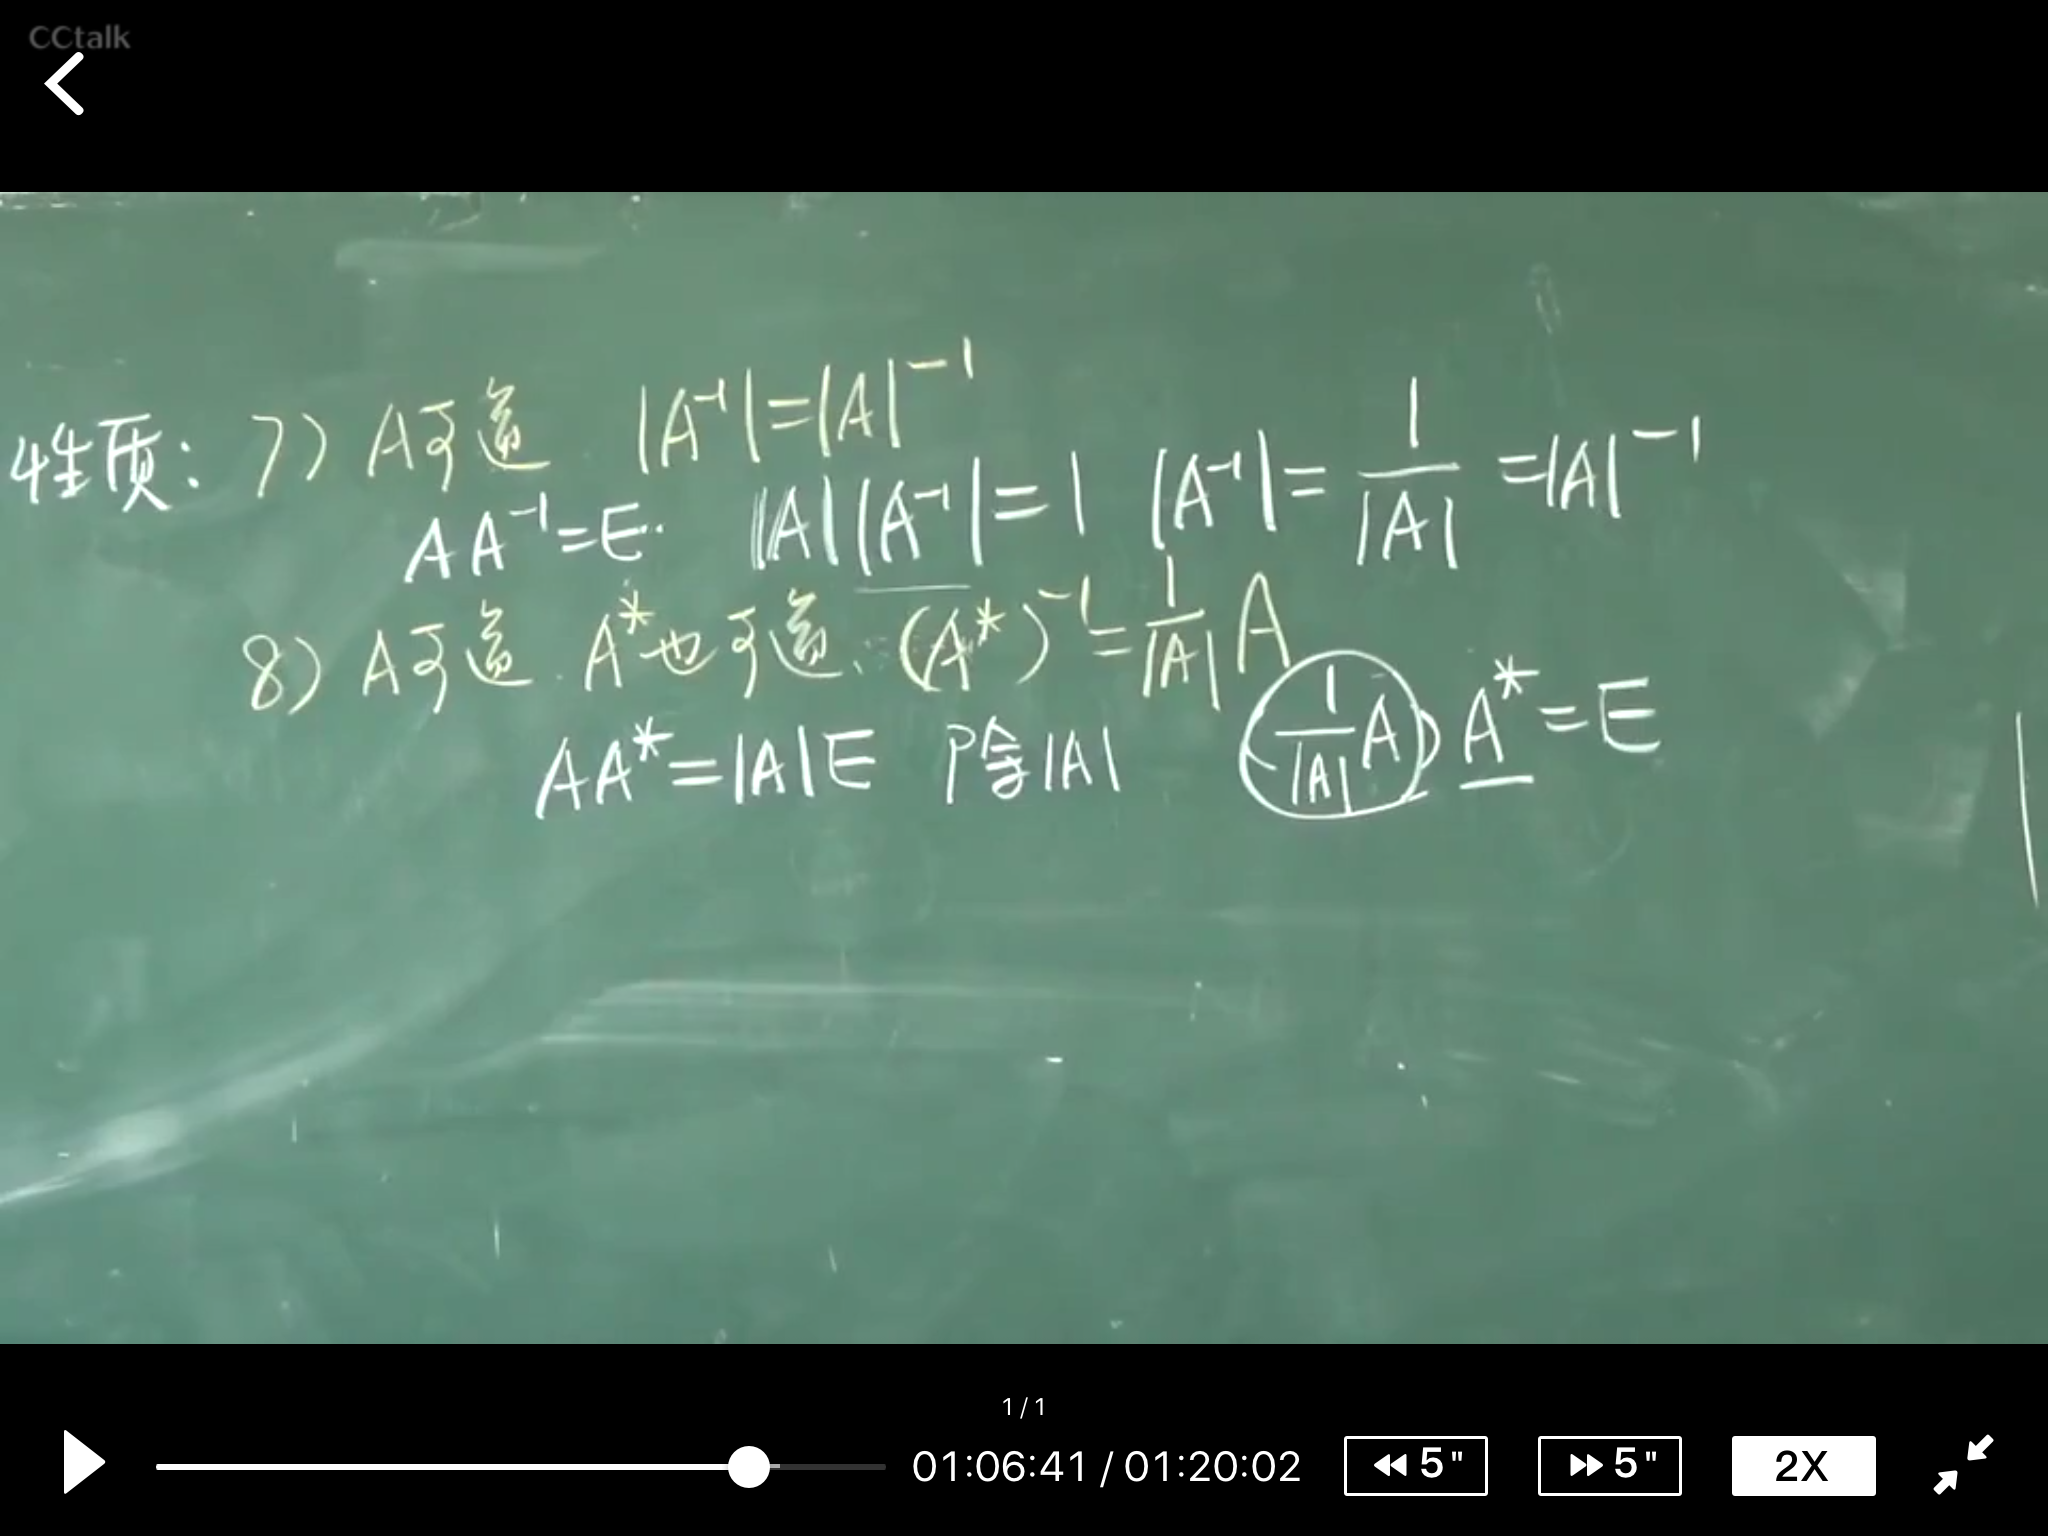 CCtalk
性质: 7) A可逆 |A⁻¹|=|A|⁻¹
AA⁻¹=E. |A||A⁻¹|=1 |A⁻¹|=1/|A|=|A|⁻¹
8) A可逆. A*也可逆. (A*)⁻¹=1/|A| A
AA*=|A|E 除|A| (1/|A| A) A*=E
1/1
01:06:41 / 01:20:02 5" 5" 2X